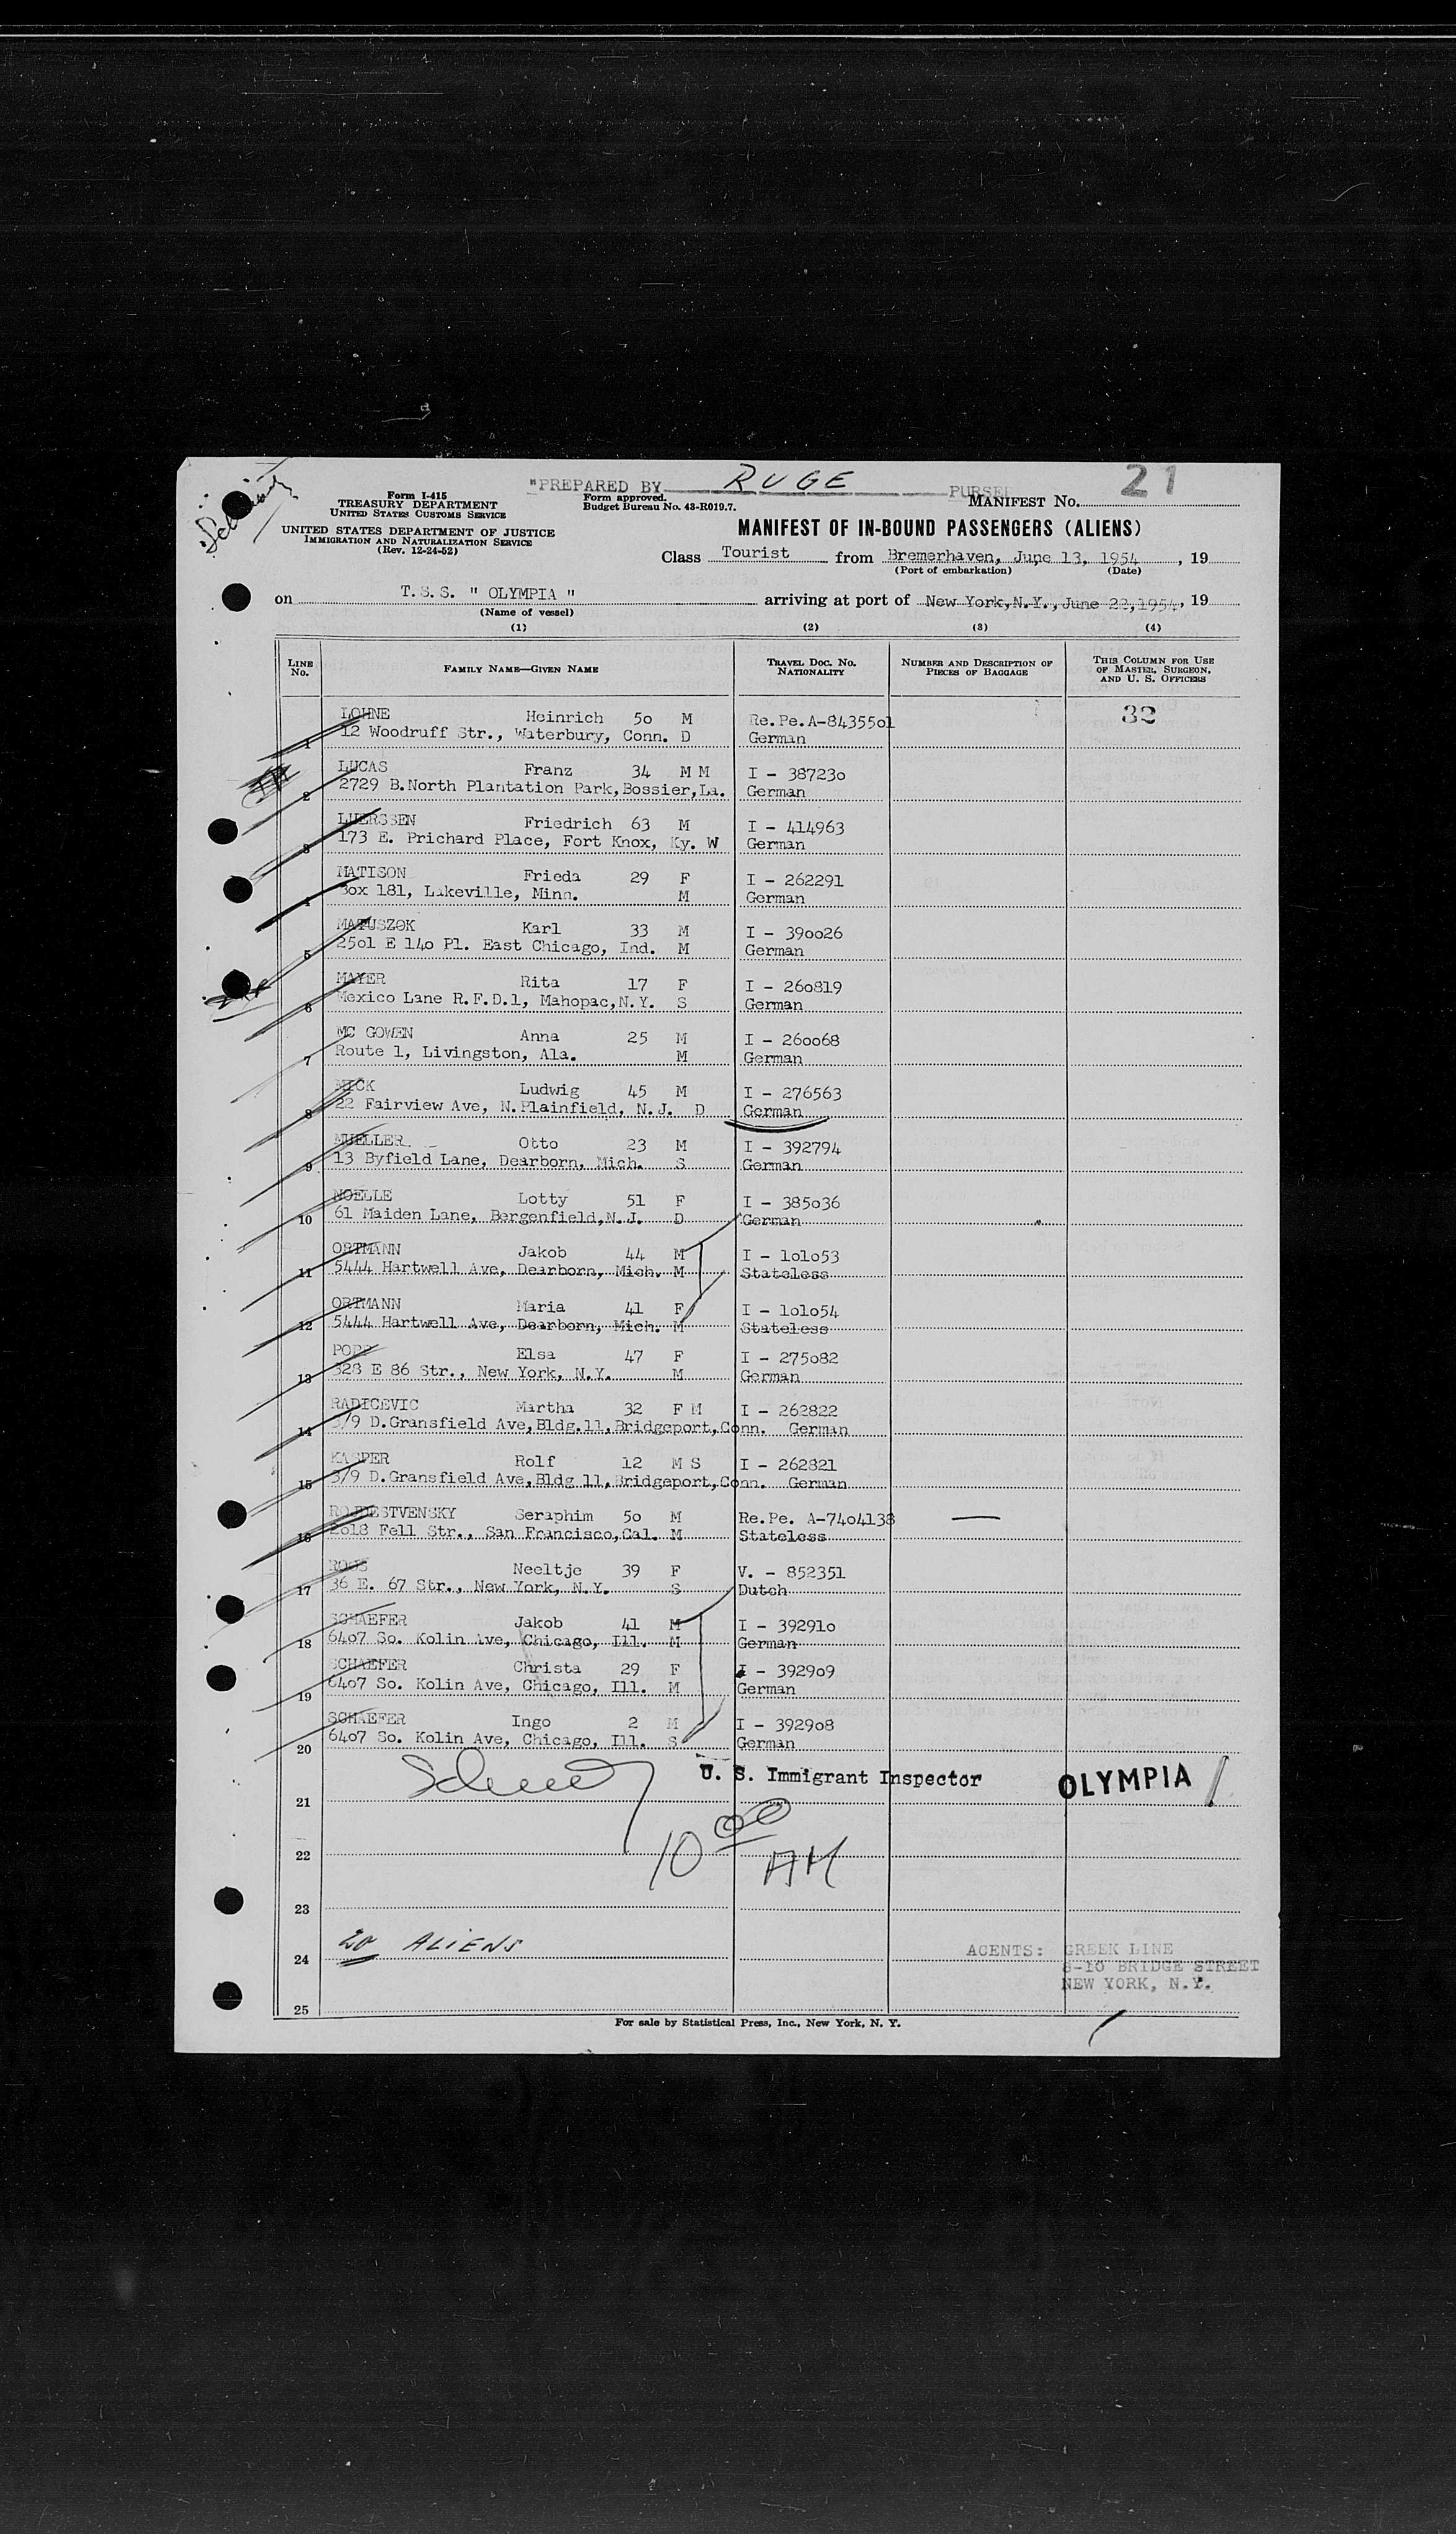 "PREPARED BY RUGE PURSER
Form I-415
TREASURY DEPARTMENT
UNITED STATES CUSTOMS SERVICE
Form approved.
Budget Bureau No. 43-R019.7.
MANIFEST No. 21
UNITED STATES DEPARTMENT OF JUSTICE
IMMIGRATION AND NATURALIZATION SERVICE
(Rev. 12-24-52)
MANIFEST OF IN-BOUND PASSENGERS (ALIENS)
Class Tourist from Bremerhaven, June 13, 1954, 19
(Port of embarkation) (Date)
on T.S.S. " OLYMPIA " arriving at port of New York,N.Y.,June 22,1954, 19
(Name of vessel)
(1) (2) (3) (4)
LINE No. FAMILY NAME—GIVEN NAME TRAVEL DOC. NO. NATIONALITY NUMBER AND DESCRIPTION OF PIECES OF BAGGAGE THIS COLUMN FOR USE OF MASTER, SURGEON, AND U. S. OFFICERS
LOHNE Heinrich 5o M Re.Pe.A-84355o1 32
1 12 Woodruff Str., Waterbury, Conn. D German
LUCAS Franz 34 M M I - 38723o
2 2729 B.North Plantation Park,Bossier,La. German
LUERSSEN Friedrich 63 M I - 414963
3 173 E. Prichard Place, Fort Knox, Ky. W German
MATISON Frieda 29 F I - 262291
4 Box 181, Lakeville, Minn. M German
MATUSZOK Karl 33 M I - 39oo26
5 25o1 E 14o Pl. East Chicago, Ind. M German
MAYER Rita 17 F I - 26o819
6 Mexico Lane R.F.D.1, Mahopac,N.Y. S German
MC GOWEN Anna 25 M I - 26oo68
7 Route 1, Livingston, Ala. M German
MICK Ludwig 45 M I - 276563
8 22 Fairview Ave, N.Plainfield, N.J. D German
MUELLER Otto 23 M I - 392794
9 13 Byfield Lane, Dearborn, Mich. S German
NOELLE Lotty 51 F I - 385o36
10 61 Maiden Lane, Bergenfield,N.J. D German
ORTMANN Jakob 44 M I - 1o1o53
11 5444 Hartwell Ave, Dearborn, Mich. M Stateless
ORTMANN Maria 41 F I - 1o1o54
12 5444 Hartwell Ave, Dearborn, Mich. M Stateless
POPP Elsa 47 F I - 275o82
13 328 E 86 Str., New York, N.Y. M German
RADICEVIC Martha 32 F M I - 262822
14 3/9 D.Gransfield Ave,Bldg.11,Bridgeport,Conn. German
KASPER Rolf 12 M S I - 262821
15 3/9 D.Gransfield Ave,Bldg 11,Bridgeport,Conn. German
ROJDESTVENSKY Seraphim 5o M Re.Pe. A-74o4138
16 2o18 Fell Str., San Francisco,Cal. M Stateless
ROOS Neeltje 39 F V. - 852351
17 36 E. 67 Str., New York, N.Y. S Dutch
SCHAEFER Jakob 41 M I - 39291o
18 64o7 So. Kolin Ave, Chicago, Ill. M German
SCHAEFER Christa 29 F I - 3929o9
19 64o7 So. Kolin Ave, Chicago, Ill. M German
SCHAEFER Ingo 2 M I - 3929o8
20 64o7 So. Kolin Ave, Chicago, Ill. S German
U. S. Immigrant Inspector OLYMPIA
21
10 00 AM
22
23
20 ALIENS
24
AGENTS: GREEK LINE
8-10 BRIDGE STREET
NEW YORK, N.Y.
25
For sale by Statistical Press, Inc., New York, N. Y.